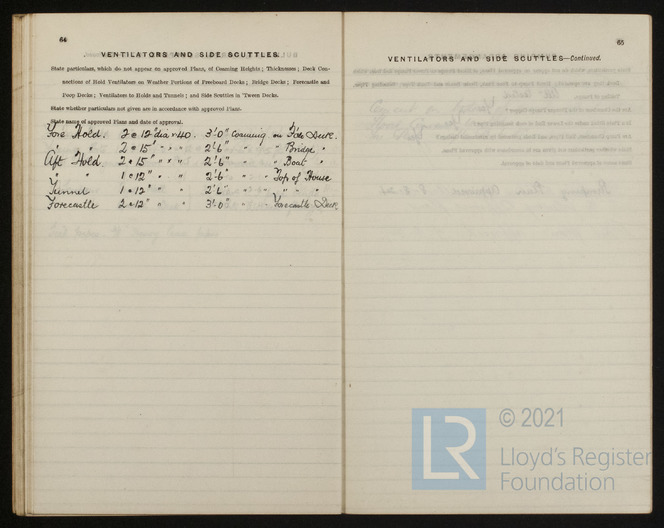 64
VENTILATORS AND SIDE SCUTTLES.
State particulars, which do not appear on approved Plans, of Coaming Heights; Thickness; Deck Con-
nections of Hold Ventilators on Weather Portions of Freeboard Decks; Bridge Decks; Forecastle and
Poop Decks; Ventilators to Holds and Tunnels; and Side Scuttles in 'Tween Decks.
State whether particulars not given are in accordance with approved Plans.
State name of approved Plans and date of approval.
Fore Hold. 2 @ 12" dia × 40. 3'-0" Coaming on F'dk Deck.
" " 2 @ 15" " " 2'-6" " " Bridge "
Aft Hold 2 @ 15" " " 2'-6" " " Boat "
" " 1 @ 12" " " 2'-6" " " Top of House
Tunnel 1 @ 12" " " 2'-6" " " " " "
Forecastle 2 @ 12" " " 3'-0" " " Forecastle Deck.
65
VENTILATORS AND SIDE SCUTTLES—Continued.
LR
© 2021
Lloyd's Register
Foundation